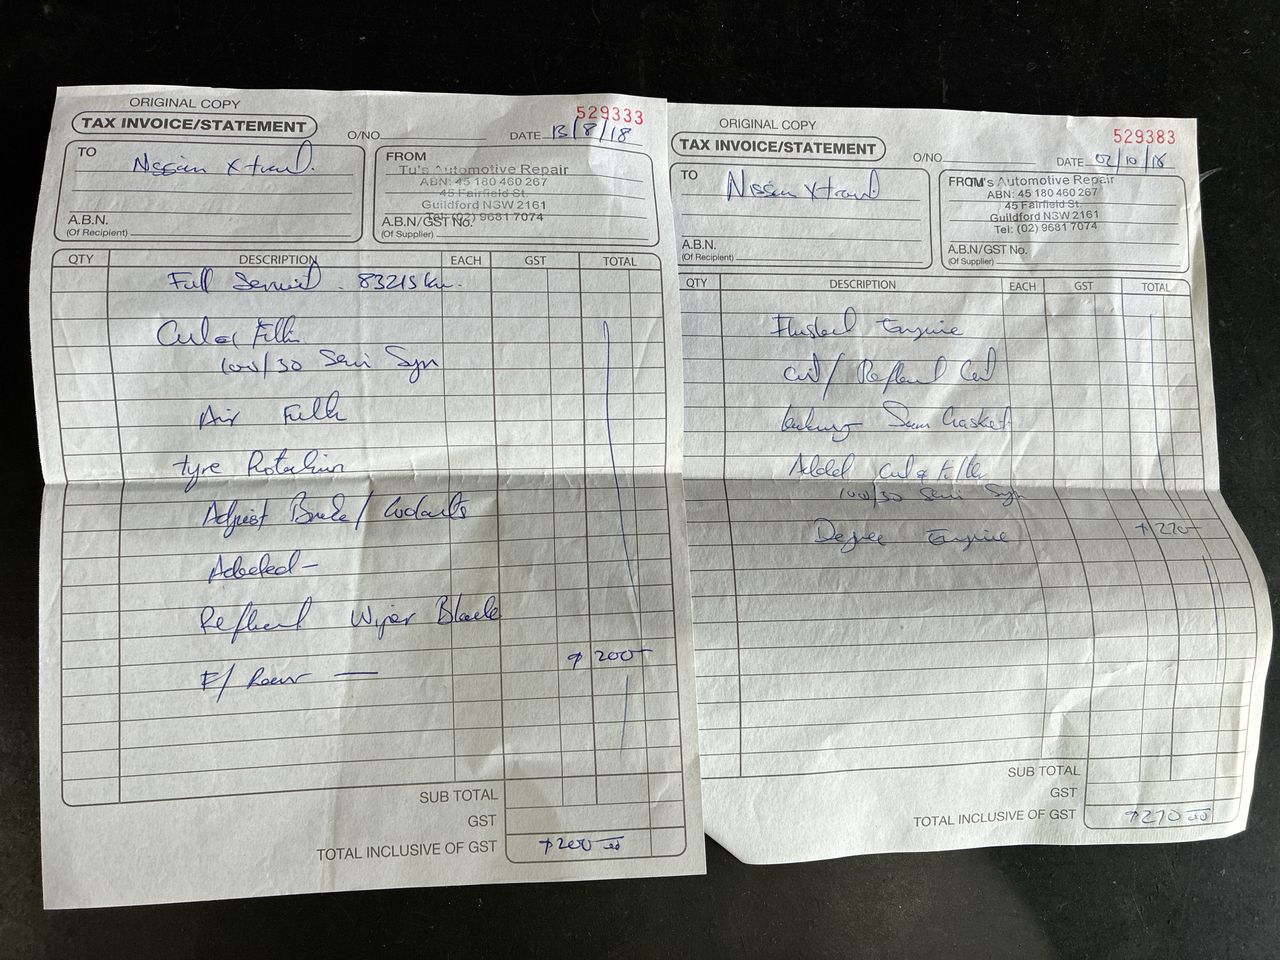 ORIGINAL COPY
529333
TAX INVOICE/STATEMENT
O/NO
DATE 13/8/18
TO
Nissan Xtrail.
A.B.N.
(Of Recipient)
FROM
Tu's Automotive Repair
ABN: 45 180 460 267
45 Fairfield St.
Guildford NSW 2161
Tel: (02) 9681 7074
A.B.N/GST No.
(Of Supplier)
QTY DESCRIPTION EACH GST TOTAL
Full Service . 83215 km.
10w/30 Semi Syn
Air Filter
Tyre Rotation
Adjust Brake /
Added -
Wiper Blade
F/ Rear —
$ 200-
SUB TOTAL
GST
TOTAL INCLUSIVE OF GST $200-00
ORIGINAL COPY
529383
TAX INVOICE/STATEMENT
O/NO
DATE 02/10/18
TO
Nissan Xtrail
A.B.N.
(Of Recipient)
FROM
Tu's Automotive Repair
ABN: 45 180 460 267
45 Fairfield St.
Guildford NSW 2161
Tel: (02) 9681 7074
A.B.N/GST No.
(Of Supplier)
QTY DESCRIPTION EACH GST TOTAL
Flushed Engine
Gasket
Added
10w/30 Semi Syn
Engine
SUB TOTAL
GST
TOTAL INCLUSIVE OF GST